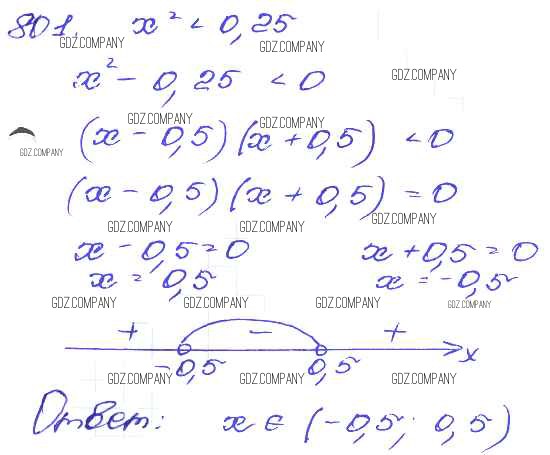 801. x² < 0,25
GDZ.COMPANY GDZ.COMPANY
x² - 0,25 < 0
GDZ.COMPANY
GDZ.COMPANY GDZ.COMPANY
(x - 0,5)(x + 0,5) < 0
GDZ.COMPANY
(x - 0,5)(x + 0,5) = 0
GDZ.COMPANY GDZ.COMPANY GDZ.COMPANY
x - 0,5 = 0 x + 0,5 = 0
x = 0,5 x = -0,5
GDZ.COMPANY GDZ.COMPANY GDZ.COMPANY GDZ.COMPANY
+ - +
-0,5 0,5 x
GDZ.COMPANY GDZ.COMPANY GDZ.COMPANY
Ответ: x ∈ (-0,5; 0,5)